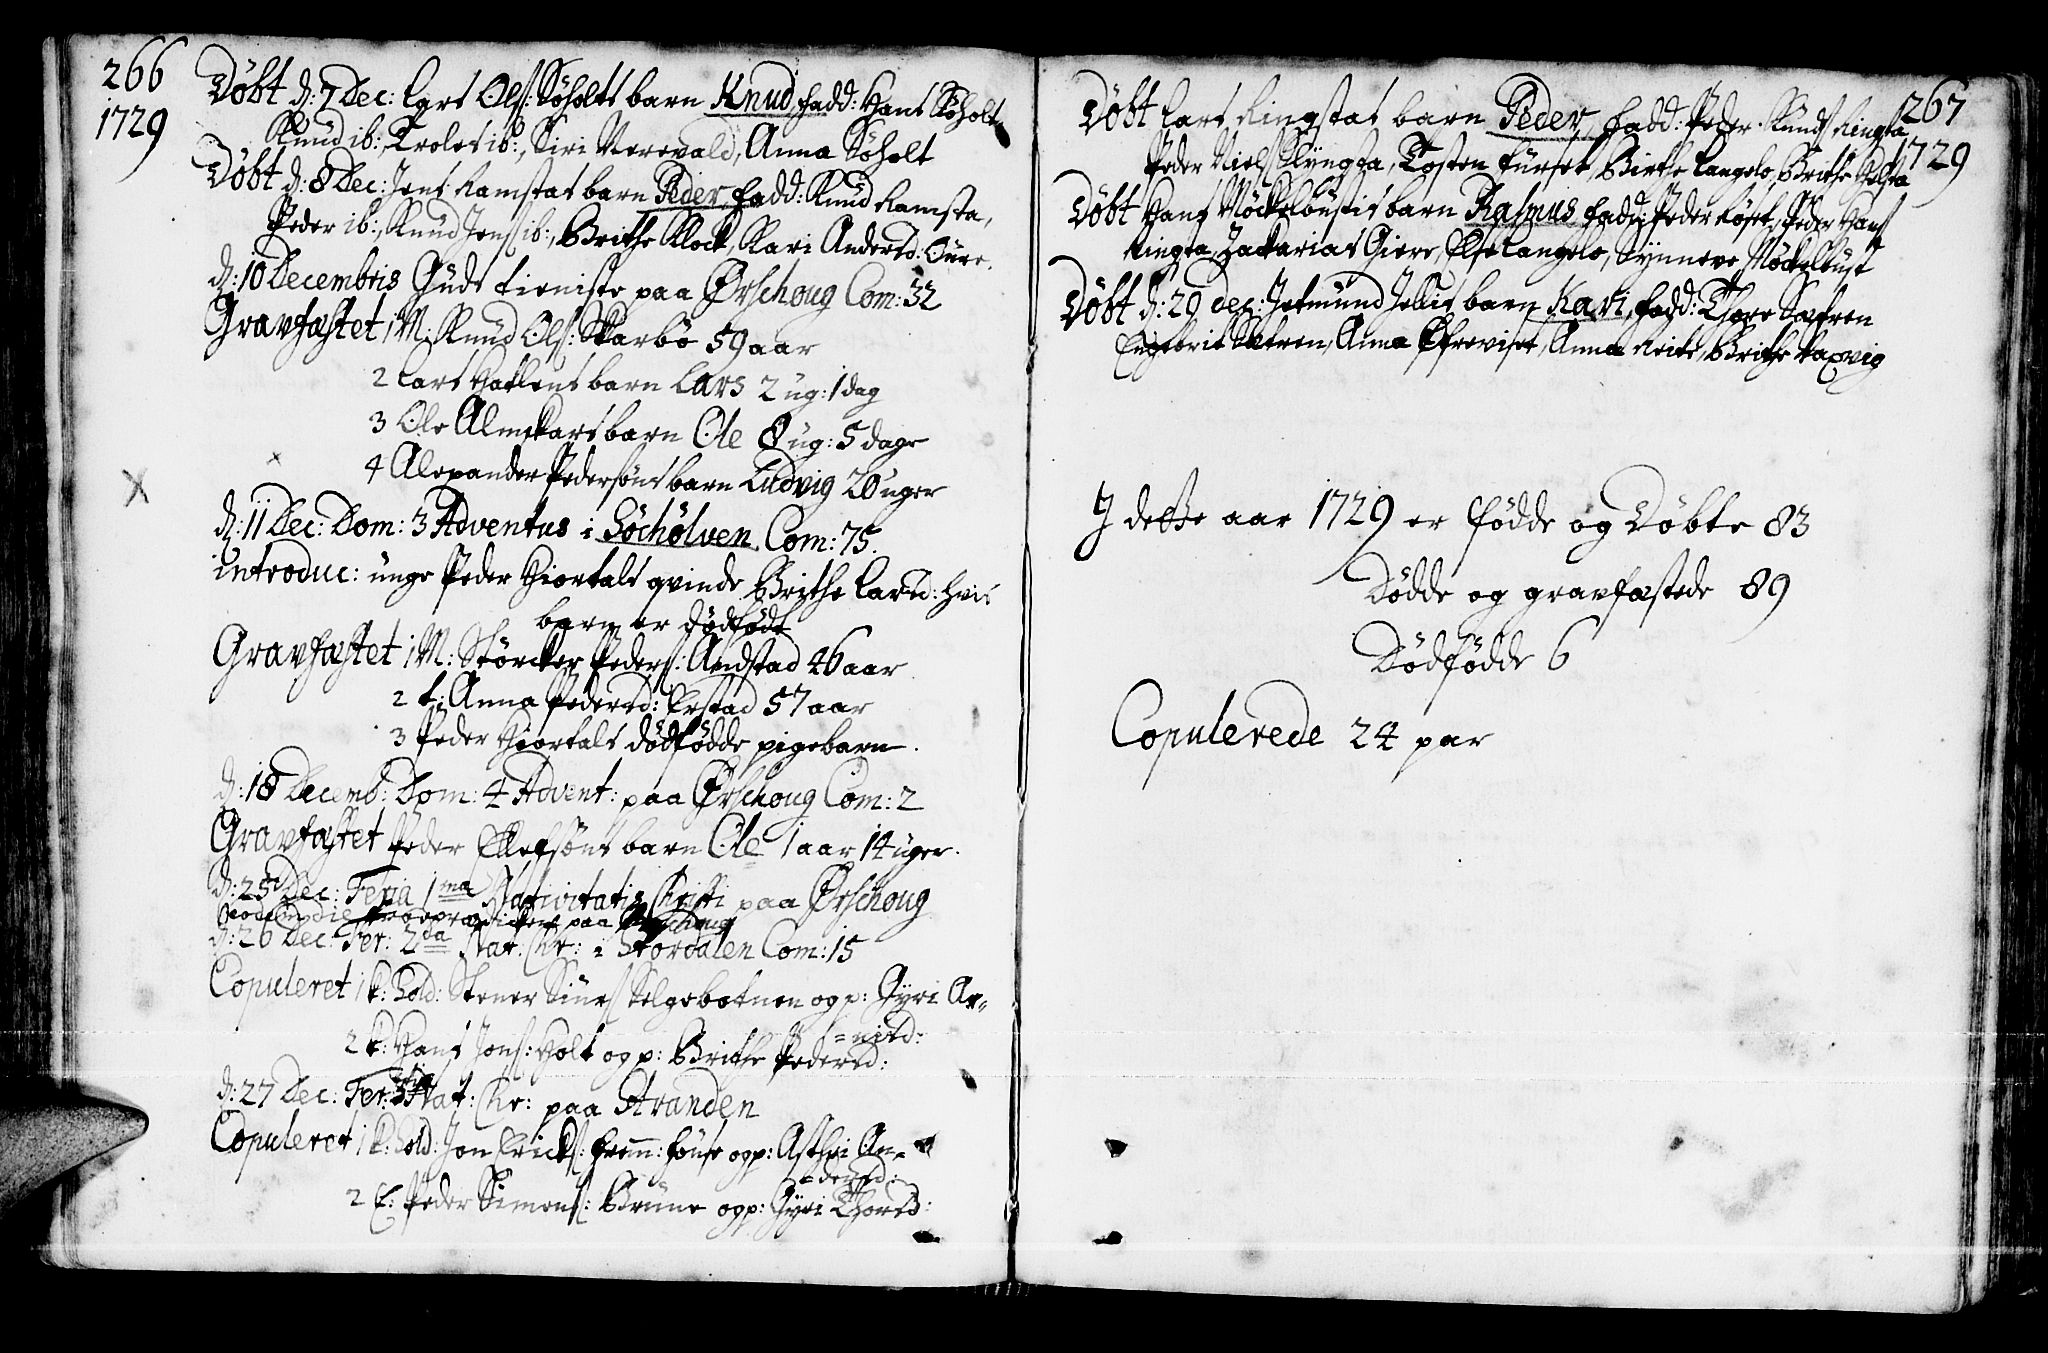 266
1729
Döbt d: 7 Dec: Lars Ols: Söholts barn Knud, fadd: Hans Söholt
Knud ib:, Troles ib:, Siri Verevald, Anna Söholt
Döbt d: 8 Dec: Jens Ramstas barn Peder, fadd: Knud Ramsta,
Peder ib:, Knud Jens: ib:, Brithe Klock, Kari Andersd: Öure.
d: 10 Decembris Guds tieniste paa Ørschoug Com: 32
Gravfæstet 1 M: Knud Ols: Skarbö 59 aar
2 Lars Hatlens barn Lars 2 ug: 1 dag
3 Ole Almskars barn Ole 8 ug: 5 dage
4 Alexander Pedersöns barn Ludvig 20 uger
d: 11 Dec: Dom: 3 Adventus i Söchölven Com: 75.
introduc: unge Peder Hiortals qvinde Brithe Larsd: hvis
barn er dödfödt
Gravfæstet 1 M: Störcker Peders: Andstad 46 aar
2 k: Anna Pedersd: Erstad 57 aar
3 Peder Hiortals dödfödde pigebarn.
d: 18 Decemb: Dom: 4 Advent: paa Ørschoug Com: 2
Gravfæstet Peder Ellefsöns barn Ole 1 aar 14 uger.
d: 25 Dec: Feria 1ma Nativitatis Christi paa Ørschoug
Eodem die paa Ørschoug
d: 26 Dec: Fer: 2da Nat: Chr: i Stordalen Com: 15
Copuleret 1 k: Sold: Stener Siurs: Selgebotnen og p: Gyri Ar=
=nisd:
2 k: Hans Jons: Holt og p: Brithe Pedersd:
d: 27 Dec: Fer: 3tia Nat: Chr: paa Stranden
Copuleret 1 k: Sold: Jon Ericks: fonse og p: Asthri An=
=dersd:
2 E: Peder Simons: Brune og p: Gyri Thorsd:
267
1729
Döbt Lars Ringstas barn Peder, fadd: Peder Knuds Ringsta,
Peder Niels Klyngsta, Tosten furset, Birthe Langelo, Brithe
Döbt Hans Möckelbusts barn Rasmus fadd: Peder Röset, Peder Hans
Ringsta, Zackarias Giere, Else Langelo, Synneve Möckelbust
Döbt d: 29 dec: Jetmund barn Kari, fadd: Thore Sætren
Engebrit Sætren, Anna Ofreviset, Anna Reite, Brithe Vaxvig
J dette aar 1729 er födde og Döbte 83
Dödde og gravfæstede 89
Dödfödde 6
Copulerede 24 par